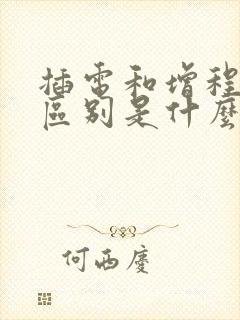 插電和增程
區別是什麼
何西慶